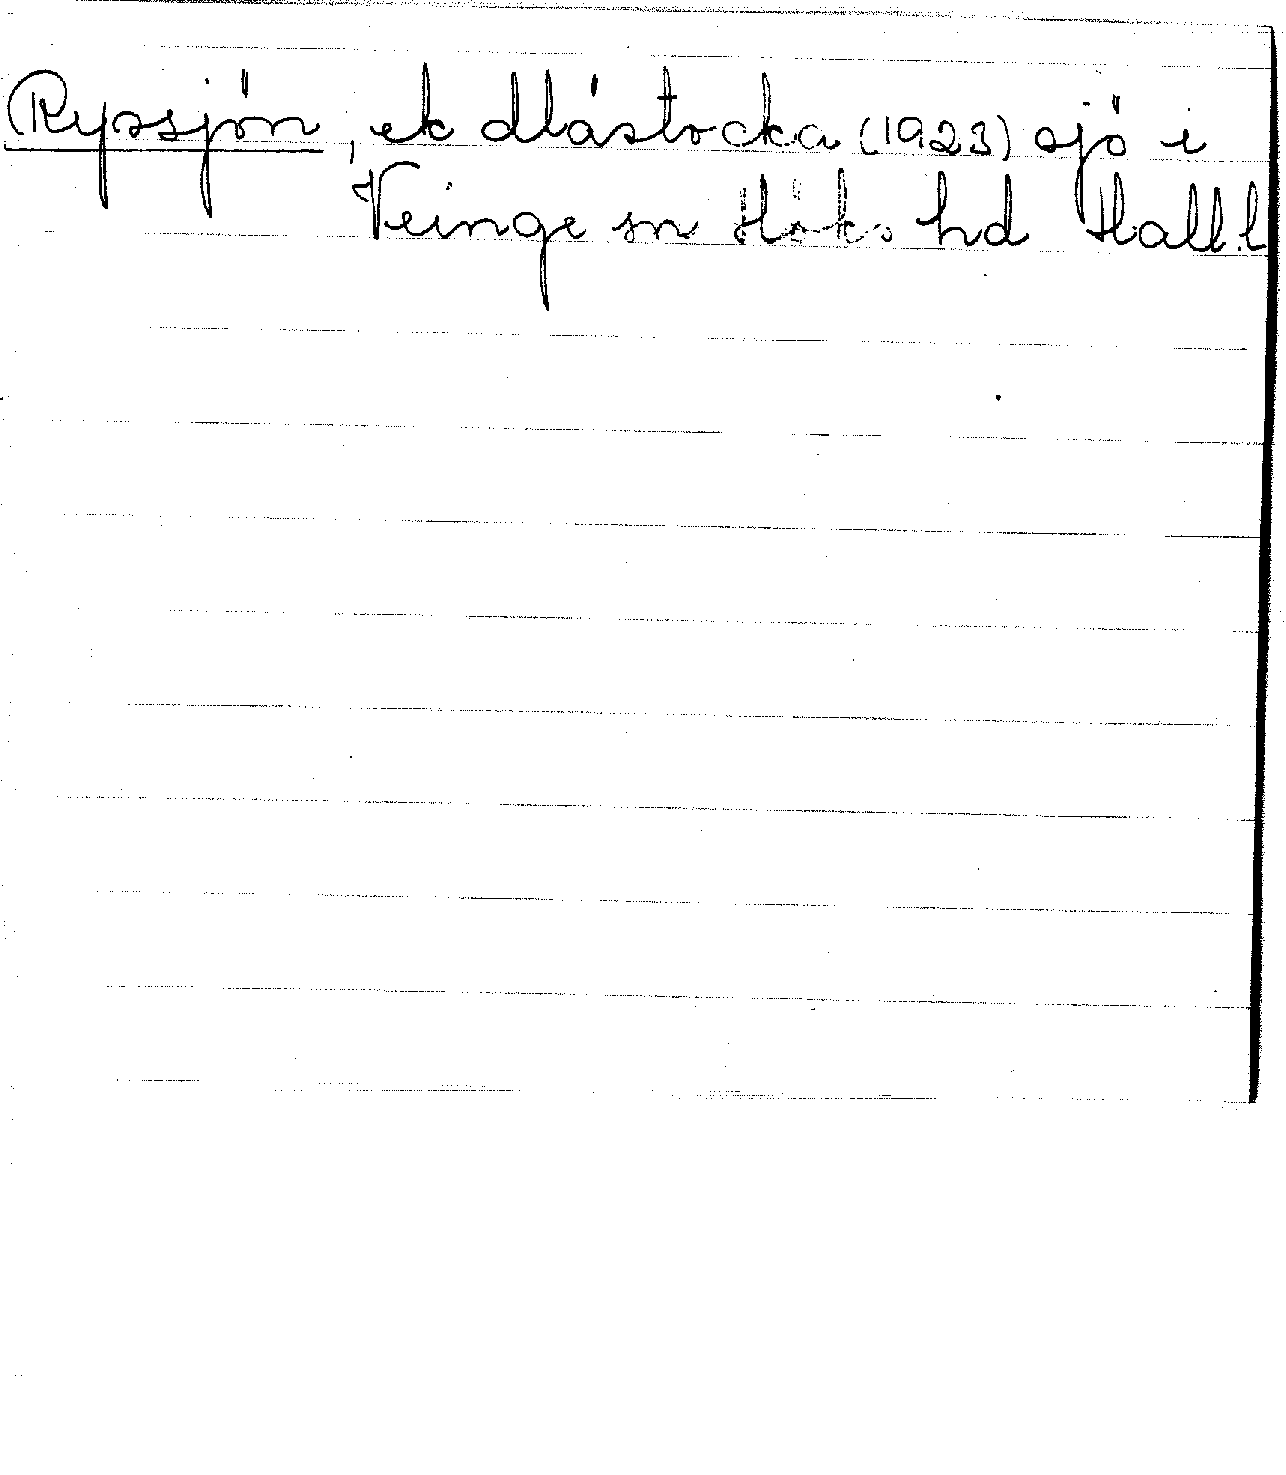 Rypsjön, ek Mästocka (1923) sjö i
Veinge sn Höks hd Hall. l